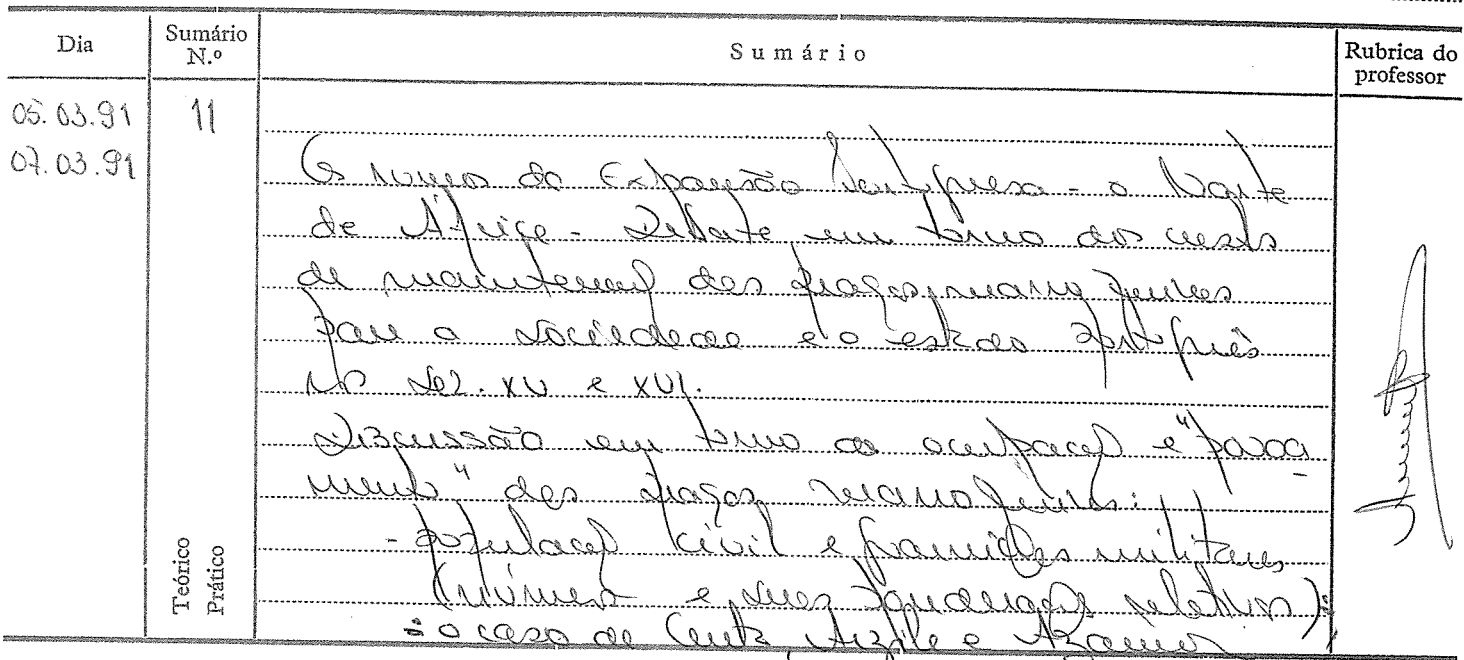 Dia
Sumário N.º
Sumário
Rubrica do professor
05.03.91
07.03.91
11
Os rumos da Expansão Portuguesa - o Norte
de África - Debate em torno dos custos
de manutenção das praças marroquinas
para a sociedade e o estado português
no séc. XV e XVI.
Discussão em torno da ocupação e "povoa
mento" das praças
- população civil e guarnições militares
(números e suas relativos);
: o caso de Ceuta, Arzila e Azamor
Teórico
Prático